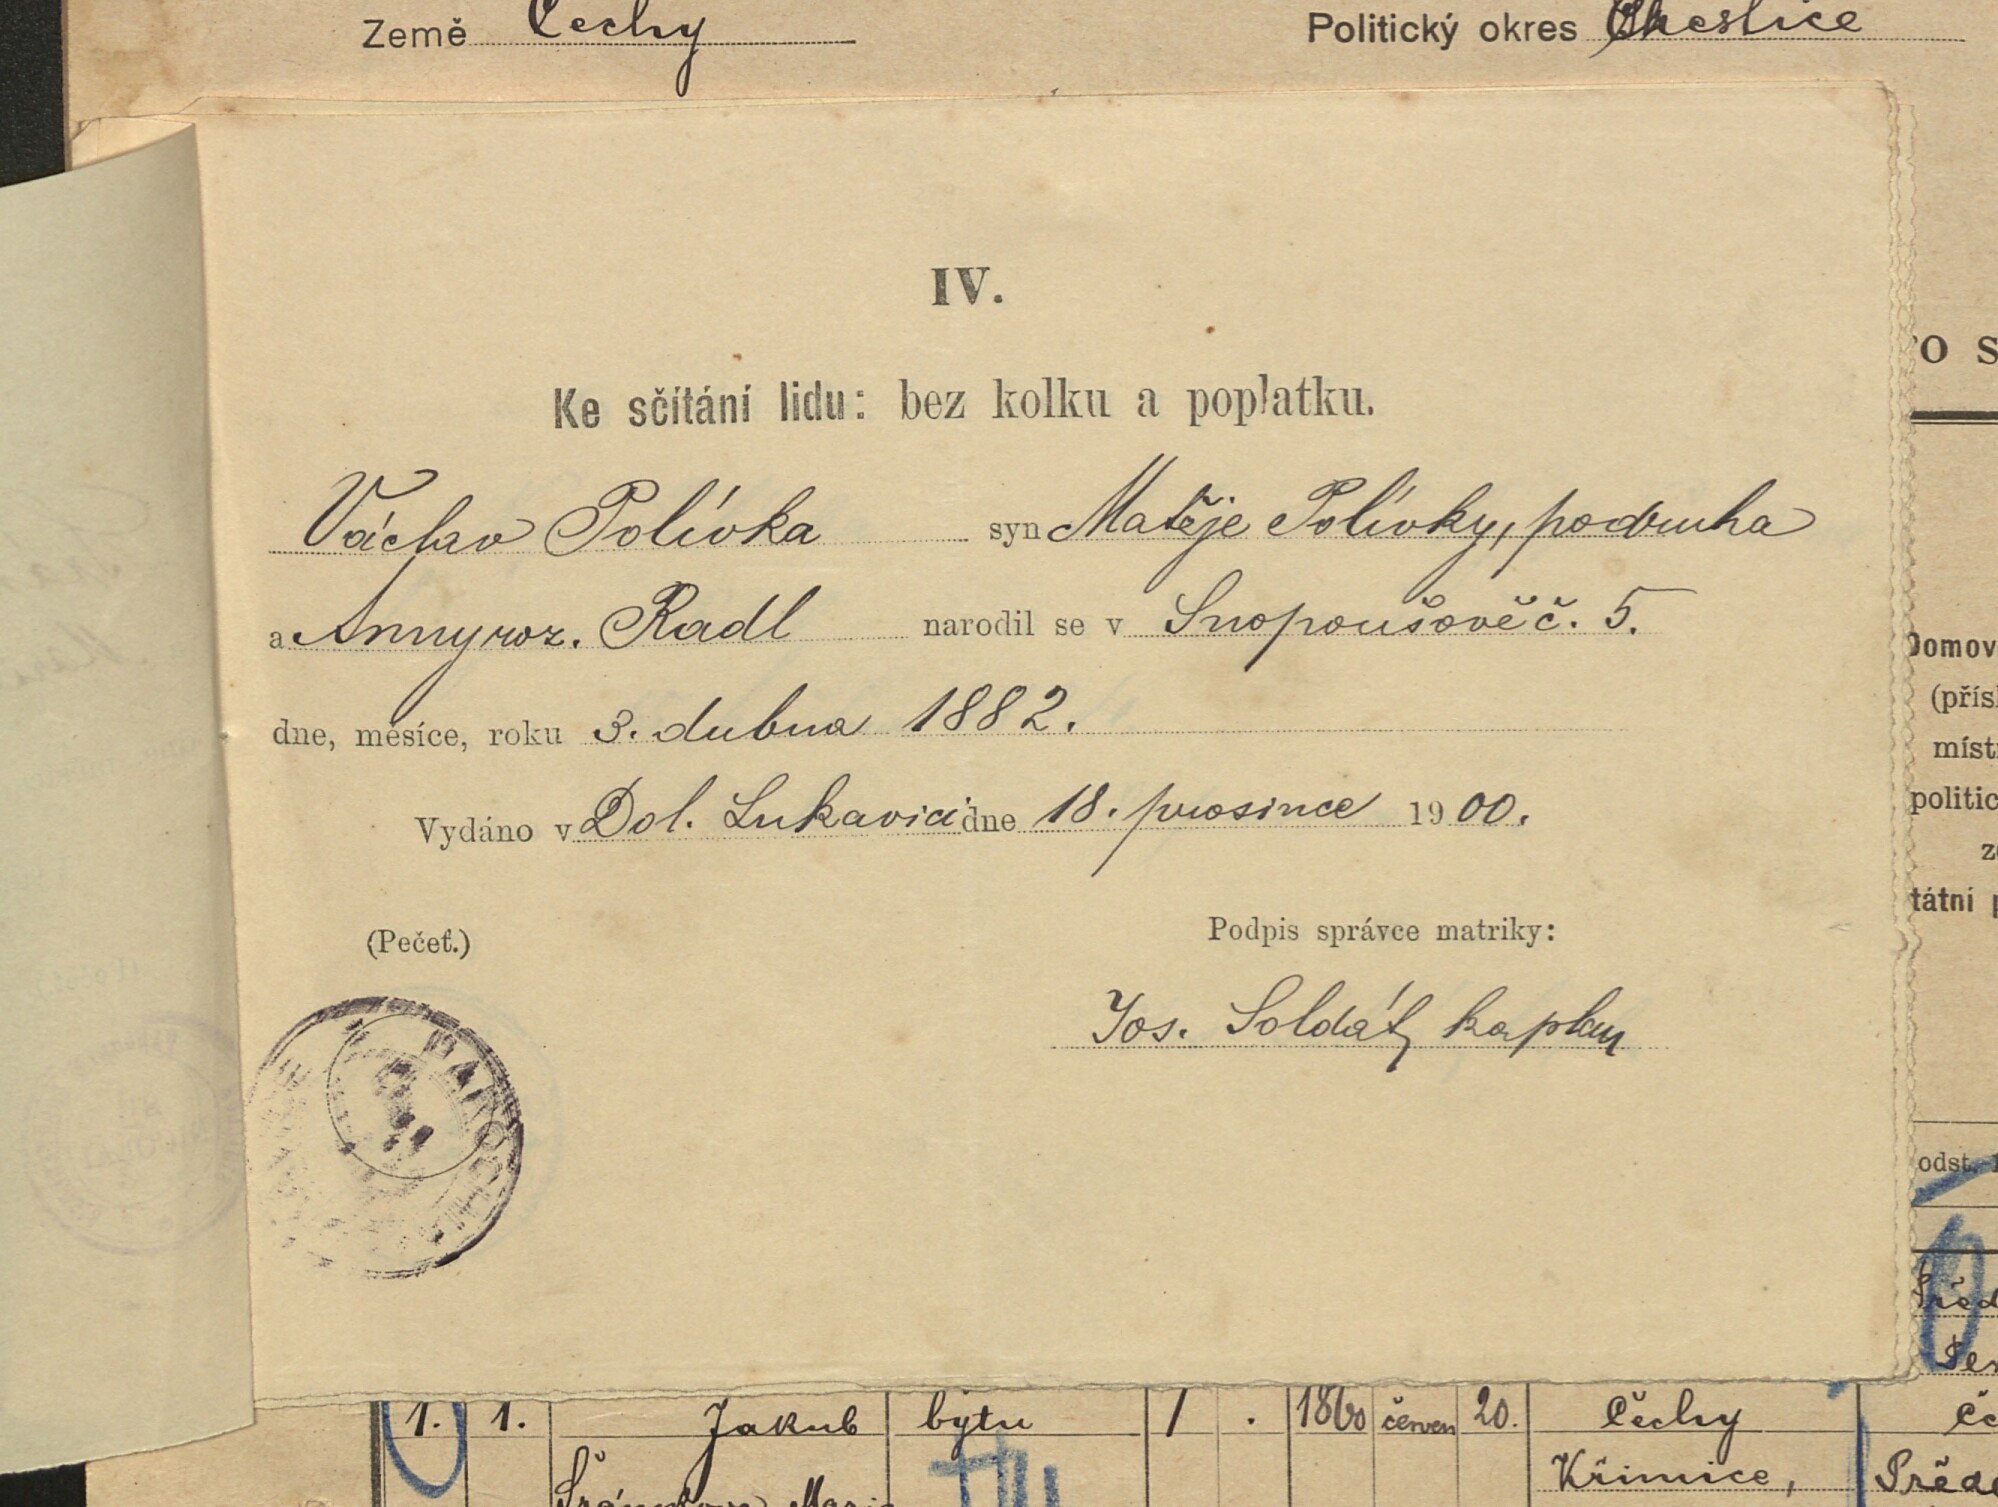 Země Čechy Politický okres
O S
IV.
Ke sčítání lidu: bez kolku a poplatku.
Václav Polívka syn Matěje Polívky, podruha
a Anny roz. Radl narodil se v Snopoušově č. 5.
dne, měsíce, roku 3. dubna 1882.
Vydáno v Dol. Lukavici dne 18. prosince 1900.
(Pečeť.)
Podpis správce matriky:
Jos. Soldát, kaplan
Domov
(přísl
míst
politic
tátní p
odst. 1
1. 1. Jakub bytu 1 . 1860 červen 20. Čechy
Křimice,